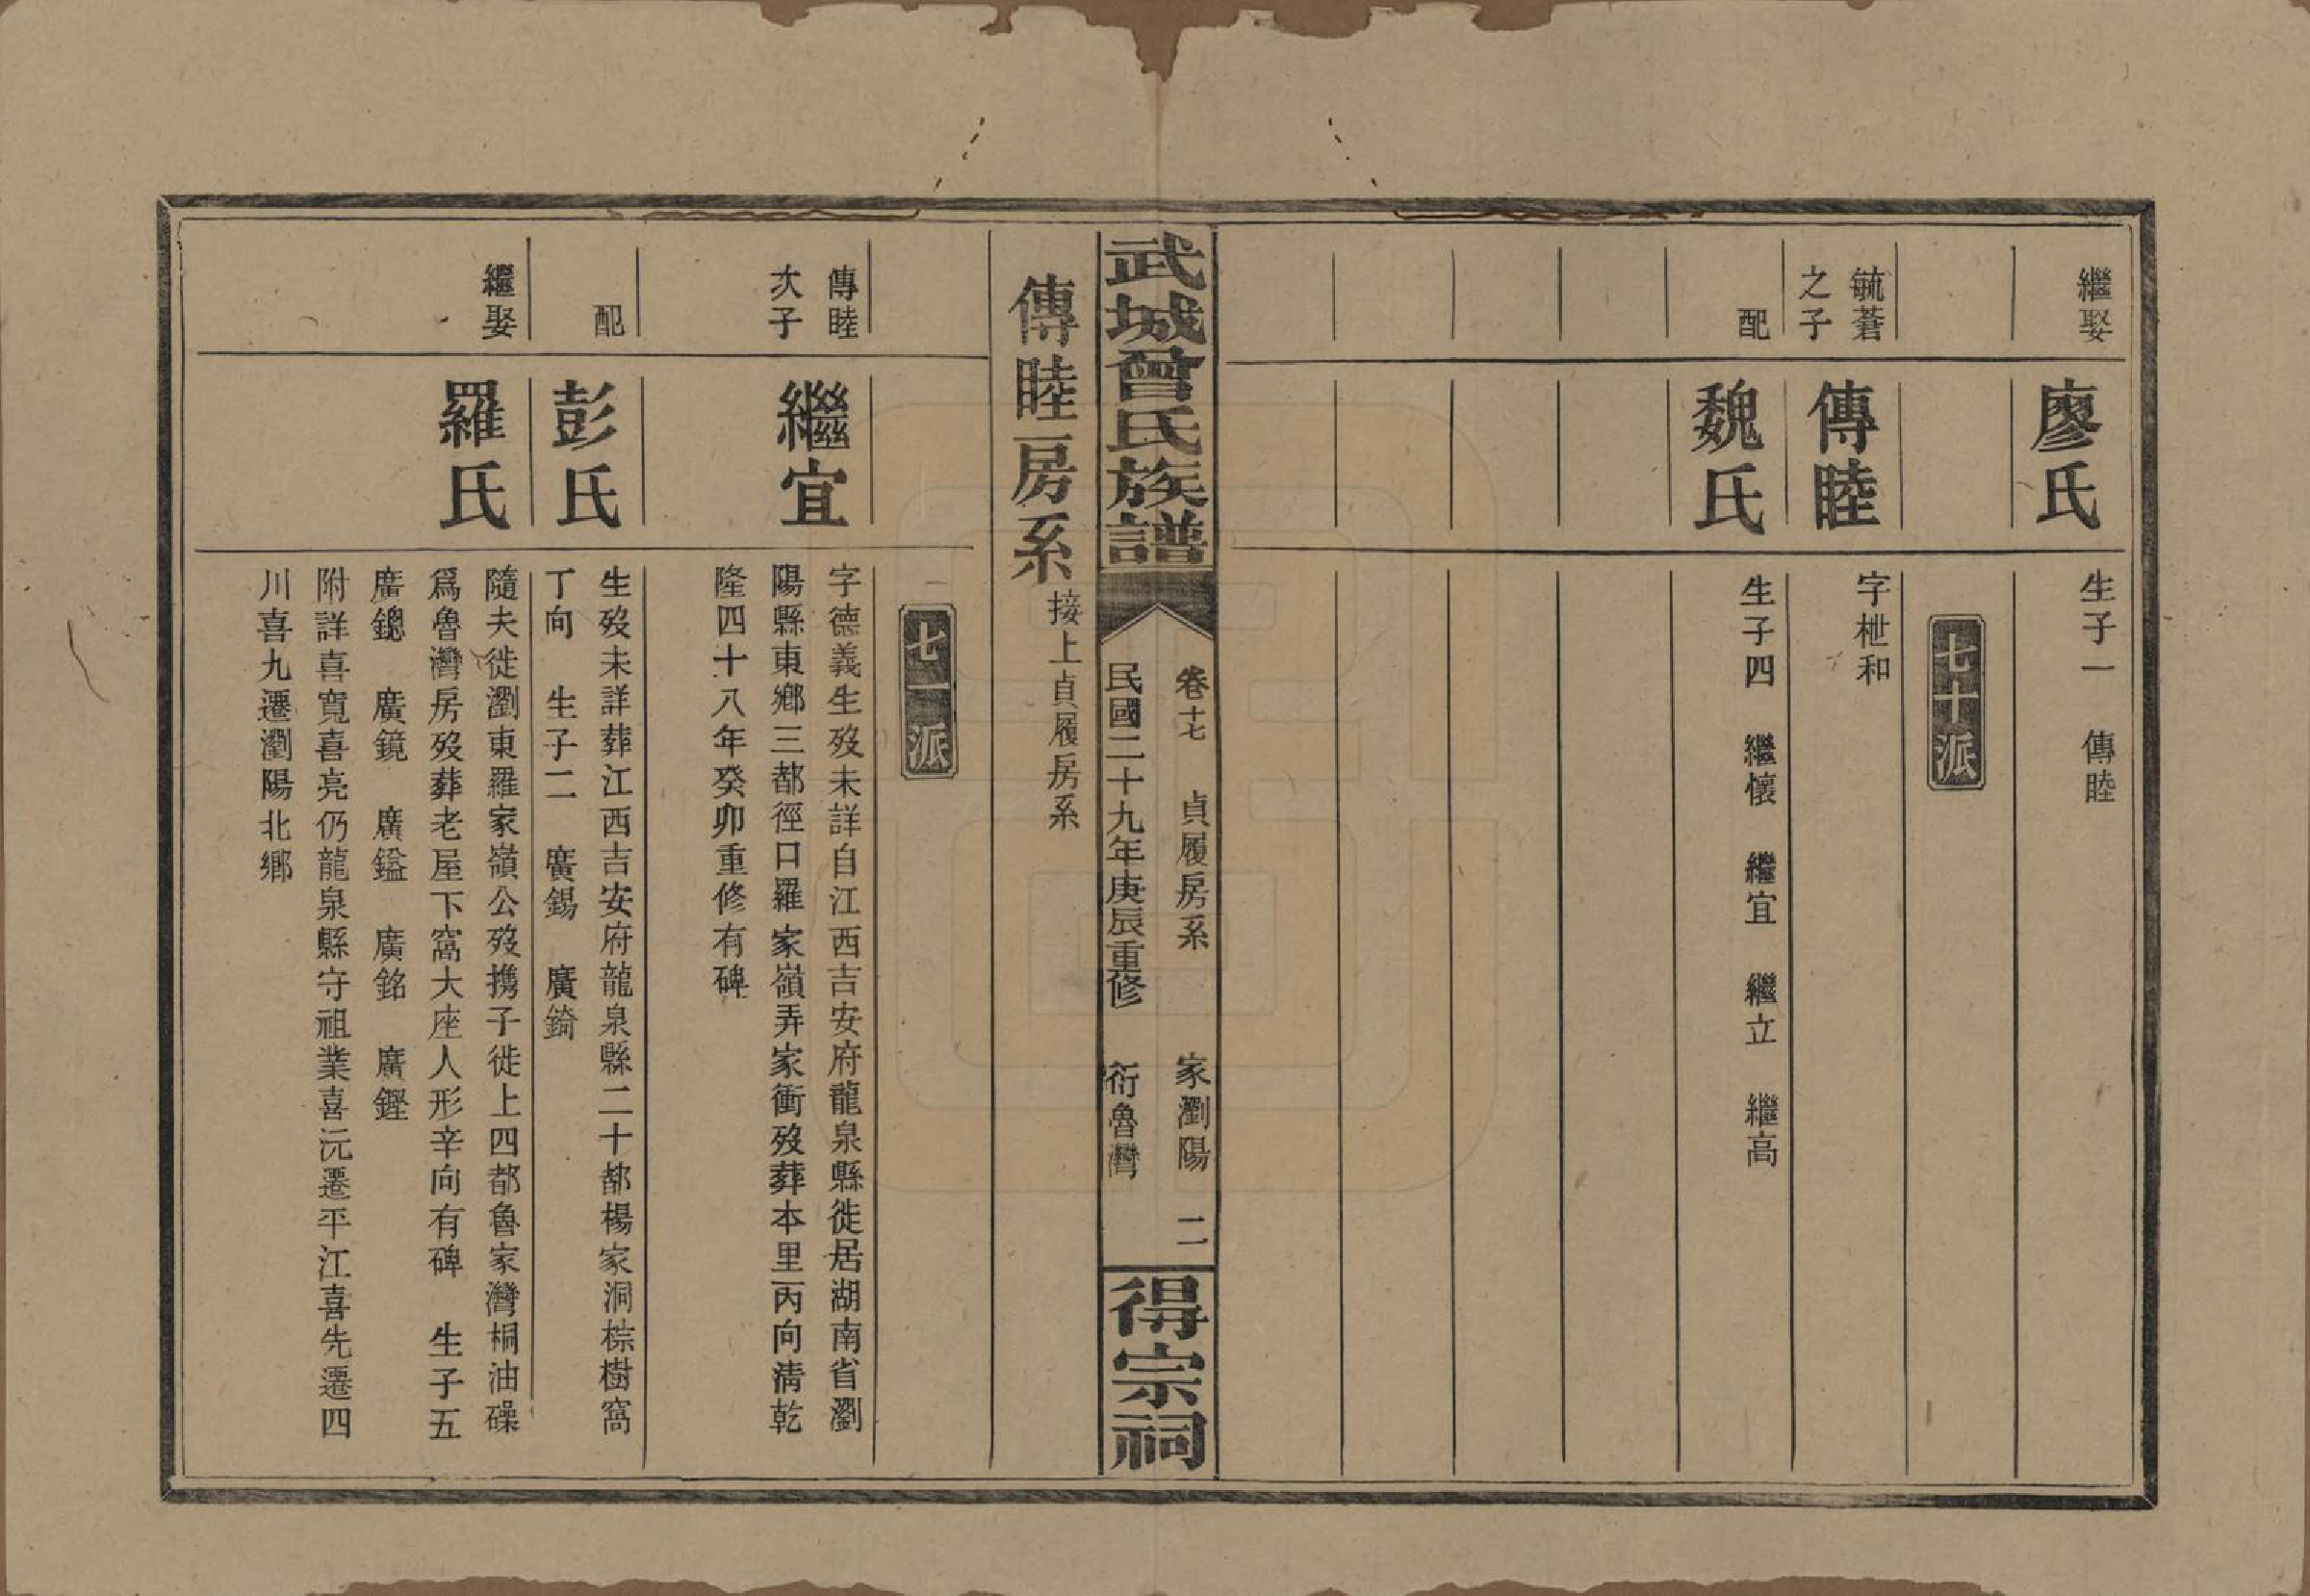 繼娶
廖氏
生子一　傳睦
七十派
毓蒼
之子
傳睦
字枻和
配
魏氏
生子四　繼懷　繼宜　繼立　繼高
武城曾氏族譜
卷十七　貞履房系　家瀏陽　二
民國二十九年庚辰重修　衍魯灣
得宗祠
傳睦房系
接上貞履房系
七一派
傳睦
次子
繼宜
字德義生歿未詳自江西吉安府龍泉縣徙居湖南省瀏
陽縣東鄉三都徑口羅家嶺弄家衝歿葬本里丙向淸乾
隆四十八年癸卯重修有碑
配
彭氏
生歿未詳葬江西吉安府龍泉縣二十都楊家洞棕樹窩
丁向　生子二　廣錫　廣錡
繼娶
羅氏
隨夫徙瀏東羅家嶺公歿携子徙上四都魯家灣桐油磉
爲魯灣房歿葬老屋下窩大座人形辛向有碑　生子五
廣鏓　廣鏡　廣鎰　廣銘　廣鏗
附詳喜寬喜亮仍龍泉縣守祖業喜沅遷平江喜先遷四
川喜九遷瀏陽北鄉